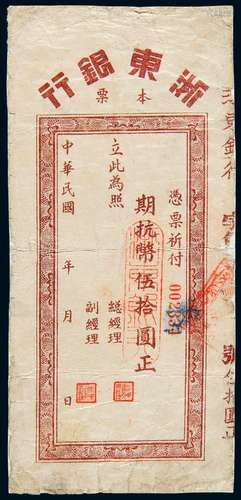 浙東銀行
本票
憑票祈付
期抗幣伍拾圓正
立此為照
總經理
副經理
中華民國 年 月 日
東銀行
號
拾圓正